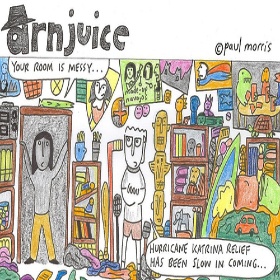 arnjuice
©paul morris
YOUR ROOM IS MESSY...
HURRICANE KATRINA RELIEF
HAS BEEN SLOW IN COMING...